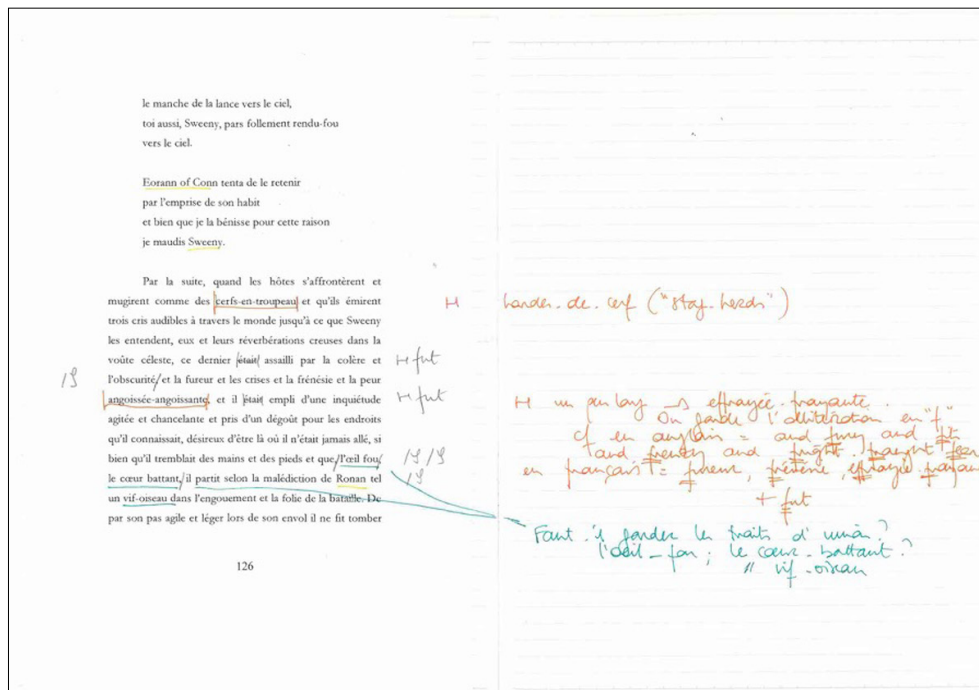 le manche de la lance vers le ciel,
toi aussi, Sweeny, pars follement rendu-fou
vers le ciel.
Eorann of Conn tenta de le retenir
par l'emprise de son habit
et bien que je la bénisse pour cette raison
je maudis Sweeny.
Par la suite, quand les hôtes s'affrontèrent et
mugirent comme des cerfs-en-troupeau et qu'ils émirent
trois cris audibles à travers le monde jusqu'à ce que Sweeny
les entendent, eux et leurs réverbérations creuses dans la
voûte céleste, ce dernier était assailli par la colère et
l'obscurité et la fureur et les crises et la frénésie et la peur
angoissée-angoissante et il était empli d'une inquiétude
agitée et chancelante et pris d'un dégoût pour les endroits
qu'il connaissait, désireux d'être là où il n'était jamais allé, si
bien qu'il tremblait des mains et des pieds et que l'œil fou,
le cœur battant, il partit selon la malédiction de Ronan tel
un vif-oiseau dans l'engouement et la folie de la bataille. De
par son pas agile et léger lors de son envol il ne fit tomber
126
H fut
H fut
H hardes-de-cerf ("stag-herds")
H un peu long → effrayée-frayante.
On garde l'allitération en "f"
cf en anglais = and fury and fits
and frenzy and fright-fraught fear
en français = fureur, frénésie, effrayée-frayante
+ fut
Faut-il garder les traits d'union?
l'oeil-fou; le cœur-battant?
" vif-oiseau